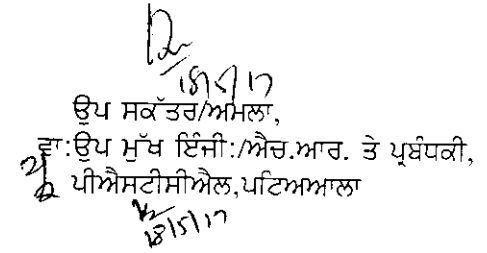 18/5/17
ਉਪ ਸਕੱਤਰ/ਅਮਲਾ,
ਵਾ:ਉਪ ਮੁੱਖ ਇੰਜੀ:/ਐਚ.ਆਰ. ਤੇ ਪ੍ਰਬੰਧਕੀ,
ਪੀਐਸਟੀਸੀਐਲ,ਪਟਿਅਆਲਾ
18/5/17